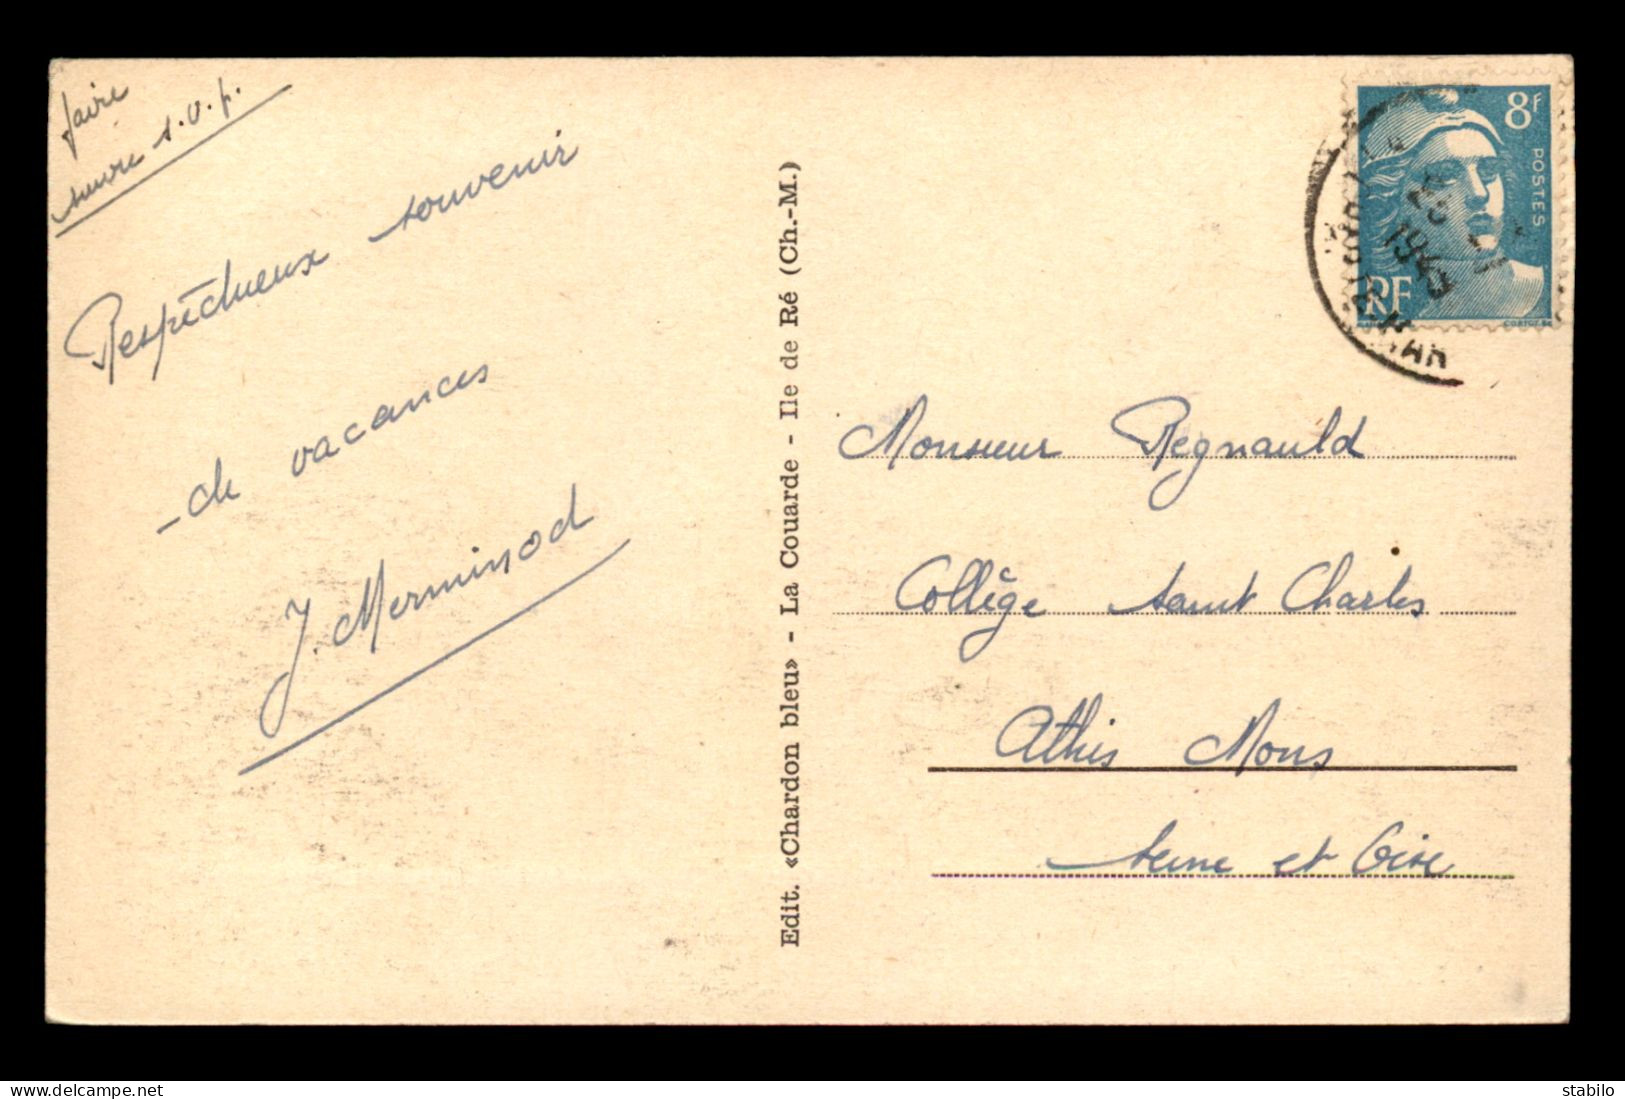 faire
suivre s.v.p.
Respectueux souvenir
de vacances
J. Merminod
Edit. «Chardon bleu» - La Couarde - Ile de Ré (Ch.-M.)
8F
POSTES
RF
Monsieur Regnauld
Collège Saint Charles
Athis Mons
Seine et Oise
delcampe.net
stabilo